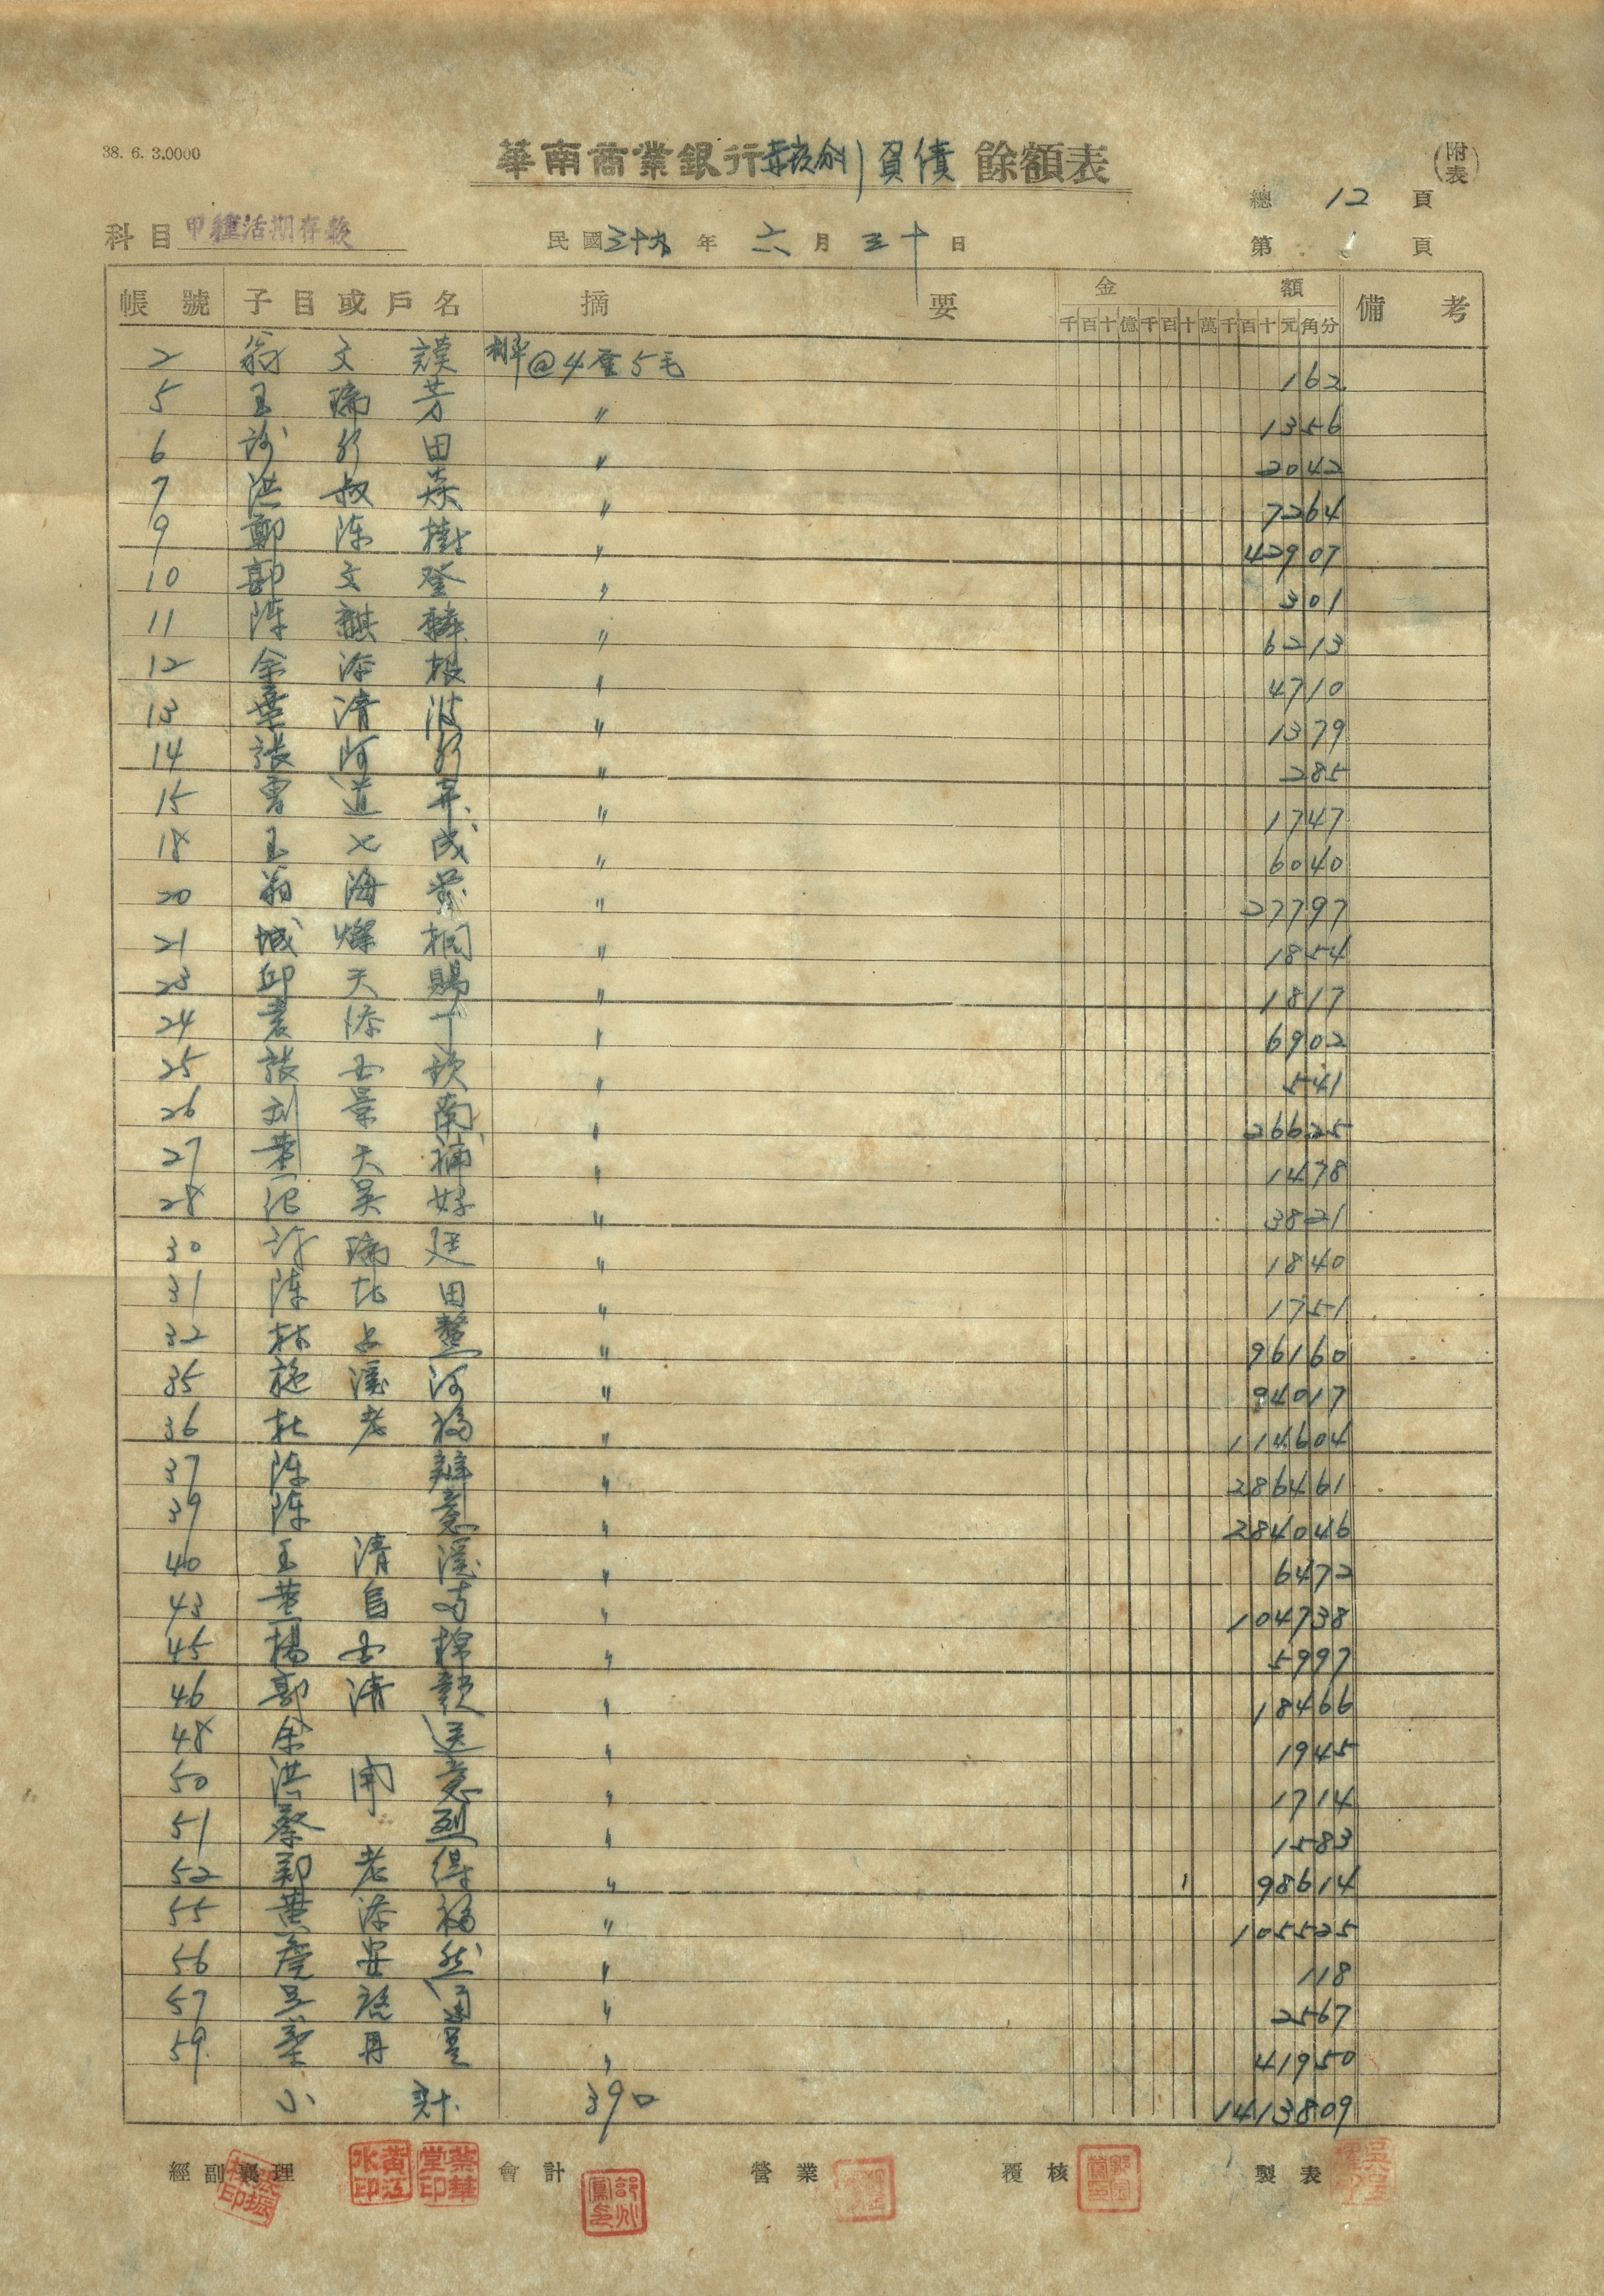 38. 6. 3.0000
華南商業銀行 負債 餘額表
(附表)
總 12 頁
科目 甲種活期存款
民國三十九年 六月 三十日
第 1 頁
帳號 子目或戶名 摘要 金額 備考
千百十億千百十萬千百十元角分
2 翁文謨 利率@4厘5毛 162
5 王瑞芳 〃 1356
6 田 〃 2042
7 洪叔 〃 7264
9 鄭陳樹 〃 42907
10 郭文登 〃 301
11 陳麒麟 〃 6213
12 余添根 〃 4710
13 葉清波 〃 1379
14 張阿 〃 285
15 曾道 〃 1747
18 王七成 〃 6040
20 翁海 〃 27797
21 城燦桐 〃 1854
23 邱天賜 〃 1817
24 添丁 〃 6902
25 張欽 〃 541
26 刘景南 〃 26625
27 黃天補 〃 1478
28 吳好 〃 3821
30 許瑞廷 〃 1840
31 陳田 〃 1751
32 林占鰲 〃 96160
35 施溪河 〃 94017
36 杜老福 〃 114604
37 陳 〃 286461
39 陳意 〃 284046
40 王清溪 〃 6472
43 黃 〃 104738
45 楊棉 〃 5997
46 郭清 〃 18466
48 余送 〃 1945
50 洪開意 〃 1714
51 蔡烈 〃 1583
52 鄭老得 〃 98614
55 黃添福 〃 105525
56 安然 〃 118
57 吳 〃 2567
59 葉再 〃 41950
小計 39口 1413809
經副襄理 會計 營業 覆核 製表
黃江水印
蔡華堂印